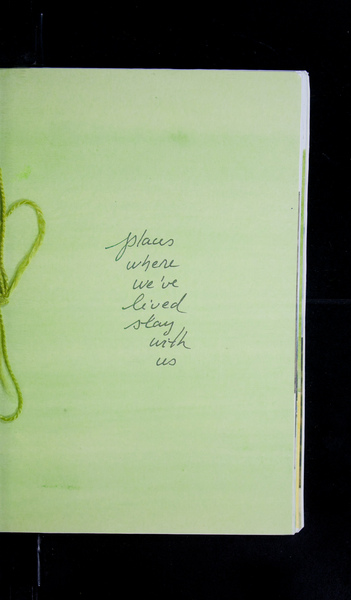 places
where
we've
lived
stay
with
us